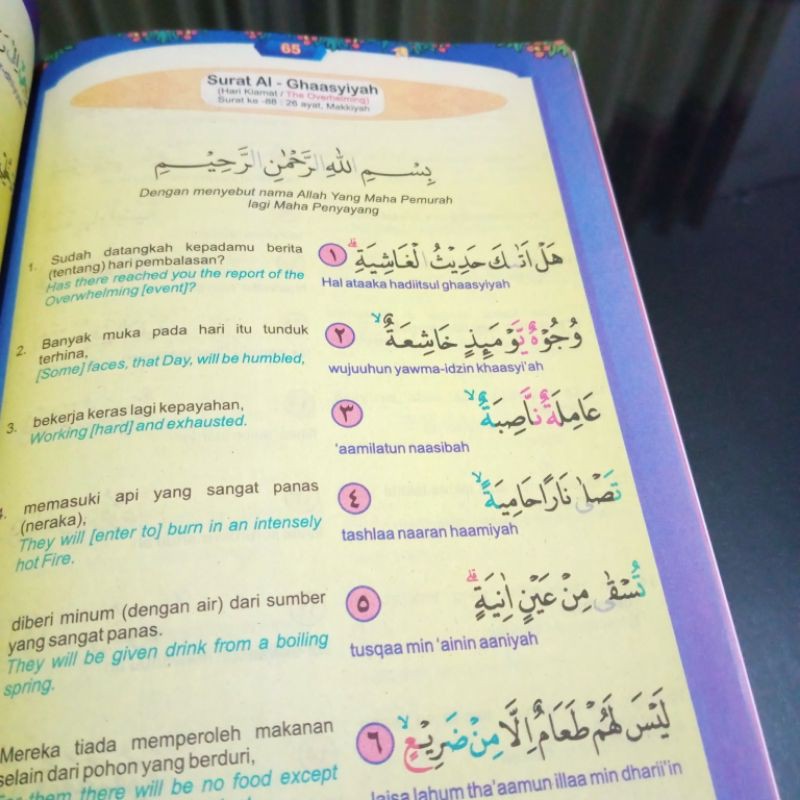 65
Surat Al - Ghaasyiyah
(Hari Kiamat / The Overhelming)
Surat ke -88 : 26 ayat, Makkiyah
بِسْمِ اللهِ الرَّحْمٰنِ الرَّحِيْمِ
Dengan menyebut nama Allah Yang Maha Pemurah
lagi Maha Penyayang
1. Sudah datangkah kepadamu berita
(tentang) hari pembalasan?
Has there reached you the report of the
Overwhelming [event]?
هَلْ اَتٰىكَ حَدِيْثُ الْغَاشِيَةِۗ ١
Hal ataaka hadiitsul ghaasyiyah
2. Banyak muka pada hari itu tunduk
terhina,
[Some] faces, that Day, will be humbled,
وُجُوْهٌ يَّوْمَىِٕذٍ خَاشِعَةٌ ۙ ٢
wujuuhun yawma-idzin khaasyi'ah
3. bekerja keras lagi kepayahan,
Working [hard] and exhausted.
عَامِلَةٌ نَّاصِبَةٌ ۙ ٣
'aamilatun naasibah
memasuki api yang sangat panas
(neraka),
They will [enter to] burn in an intensely
hot Fire.
تَصْلٰى نَارًا حَامِيَةً ۙ ٤
tashlaa naaran haamiyah
diberi minum (dengan air) dari sumber
yang sangat panas.
They will be given drink from a boiling
spring.
تُسْقٰى مِنْ عَيْنٍ اٰنِيَةٍ ۗ ٥
tusqaa min 'ainin aaniyah
Mereka tiada memperoleh makanan
selain dari pohon yang berduri,
them there will be no food except
لَيْسَ لَهُمْ طَعَامٌ اِلَّا مِنْ ضَرِيْعٍ ۙ ٦
laisa lahum tha'aamun illaa min dharii'in